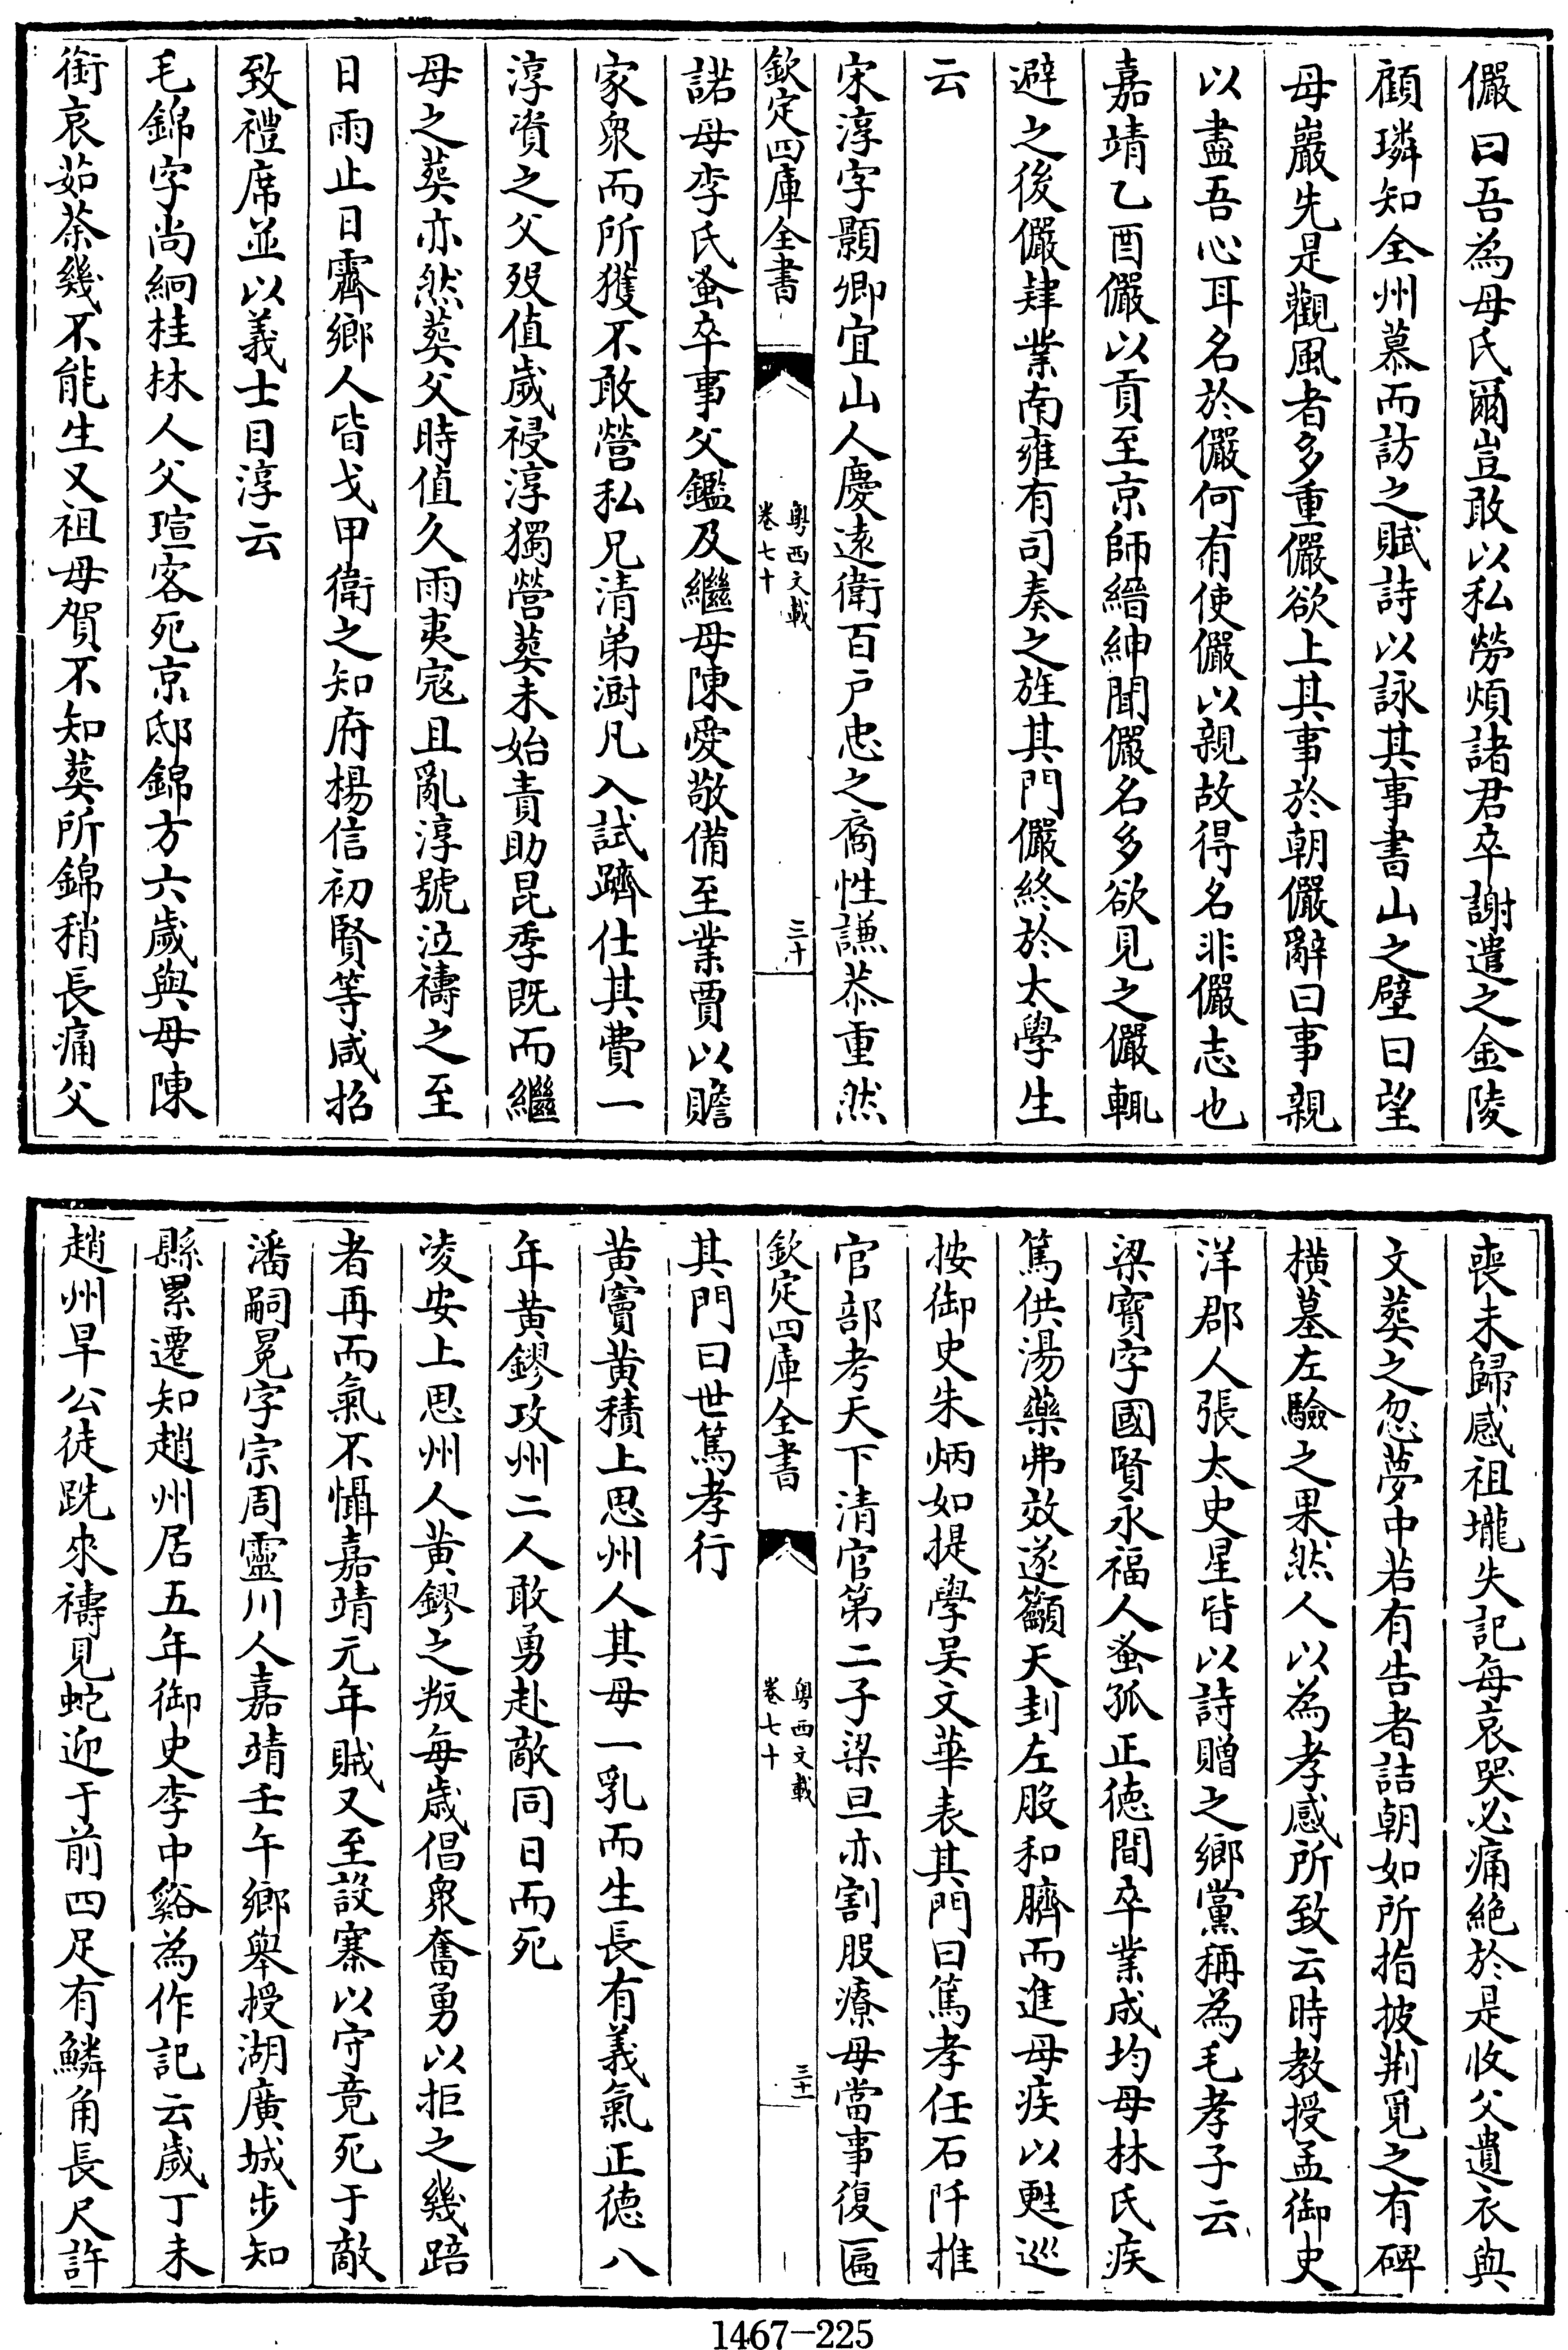 儼曰吾為母氏爾豈敢以私勞煩諸君卒謝遣之金陵
顧璘知全州慕而訪之賦詩以詠其事書山之壁曰望
母巖先是觀風者多重儼欲上其事於朝儼辭曰事親
以盡吾心耳名於儼何有使儼以親故得名非儼志也
嘉靖乙酉儼以貢至京師縉紳聞儼名多欲見之儼輒
避之後儼肄業南雍有司奏之旌其門儼終於太學生
云
宋淳字顥卿宜山人慶遠衛百戶忠之裔性謙恭重然
欽定四庫全書
粵西文載
卷七十
三十
諾母李氏蚤卒事父鑑及繼母陳愛敬備至業賈以贍
家衆而所獲不敢營私兄清弟澍凡入試躋仕其費一
淳資之父歿值歲祲淳獨營葬未始責助昆季既而繼
母之葬亦然葬父時值久雨夷寇且亂淳號泣禱之至
日雨止日霽鄉人皆戈甲衛之知府楊信初賢等咸招
致禮席並以義士目淳云
毛錦字尚絅桂林人父瑄客死京邸錦方六歲與母陳
銜哀茹荼幾不能生又祖母賀不知葬所錦稍長痛父
喪未歸感祖壠失記每哀哭必痛絕於是收父遺衣與
文葬之忽夢中若有告者詰朝如所指披荆覓之有碑
橫墓左驗之果然人以為孝感所致云時教授孟御史
洋郡人張太史星皆以詩贈之鄉黨稱為毛孝子云
梁寶字國賢永福人蚤孤正德間卒業成均母林氏疾
篤供湯藥弗效遂籲天刲左股和臍而進母疾以甦巡
按御史朱炳如提學吳文華表其門曰篤孝任石阡推
官部考天下清官第二子梁旦亦割股療母當事復匾
欽定四庫全書
粵西文載
卷七十
三十一
其門曰世篤孝行
黃竇黃積上思州人其母一乳而生長有義氣正德八
年黃鏐攻州二人敢勇赴敵同日而死
凌安上思州人黃鏐之叛每歲倡衆奮勇以拒之幾踣
者再而氣不懾嘉靖元年賊又至設寨以守竟死于敵
潘嗣冕字宗周靈川人嘉靖壬午鄉舉授湖廣城步知
縣累遷知趙州居五年御史李中谿為作記云歲丁未
趙州旱公徒跣來禱見蛇迎于前四足有鱗角長尺許
1467-225